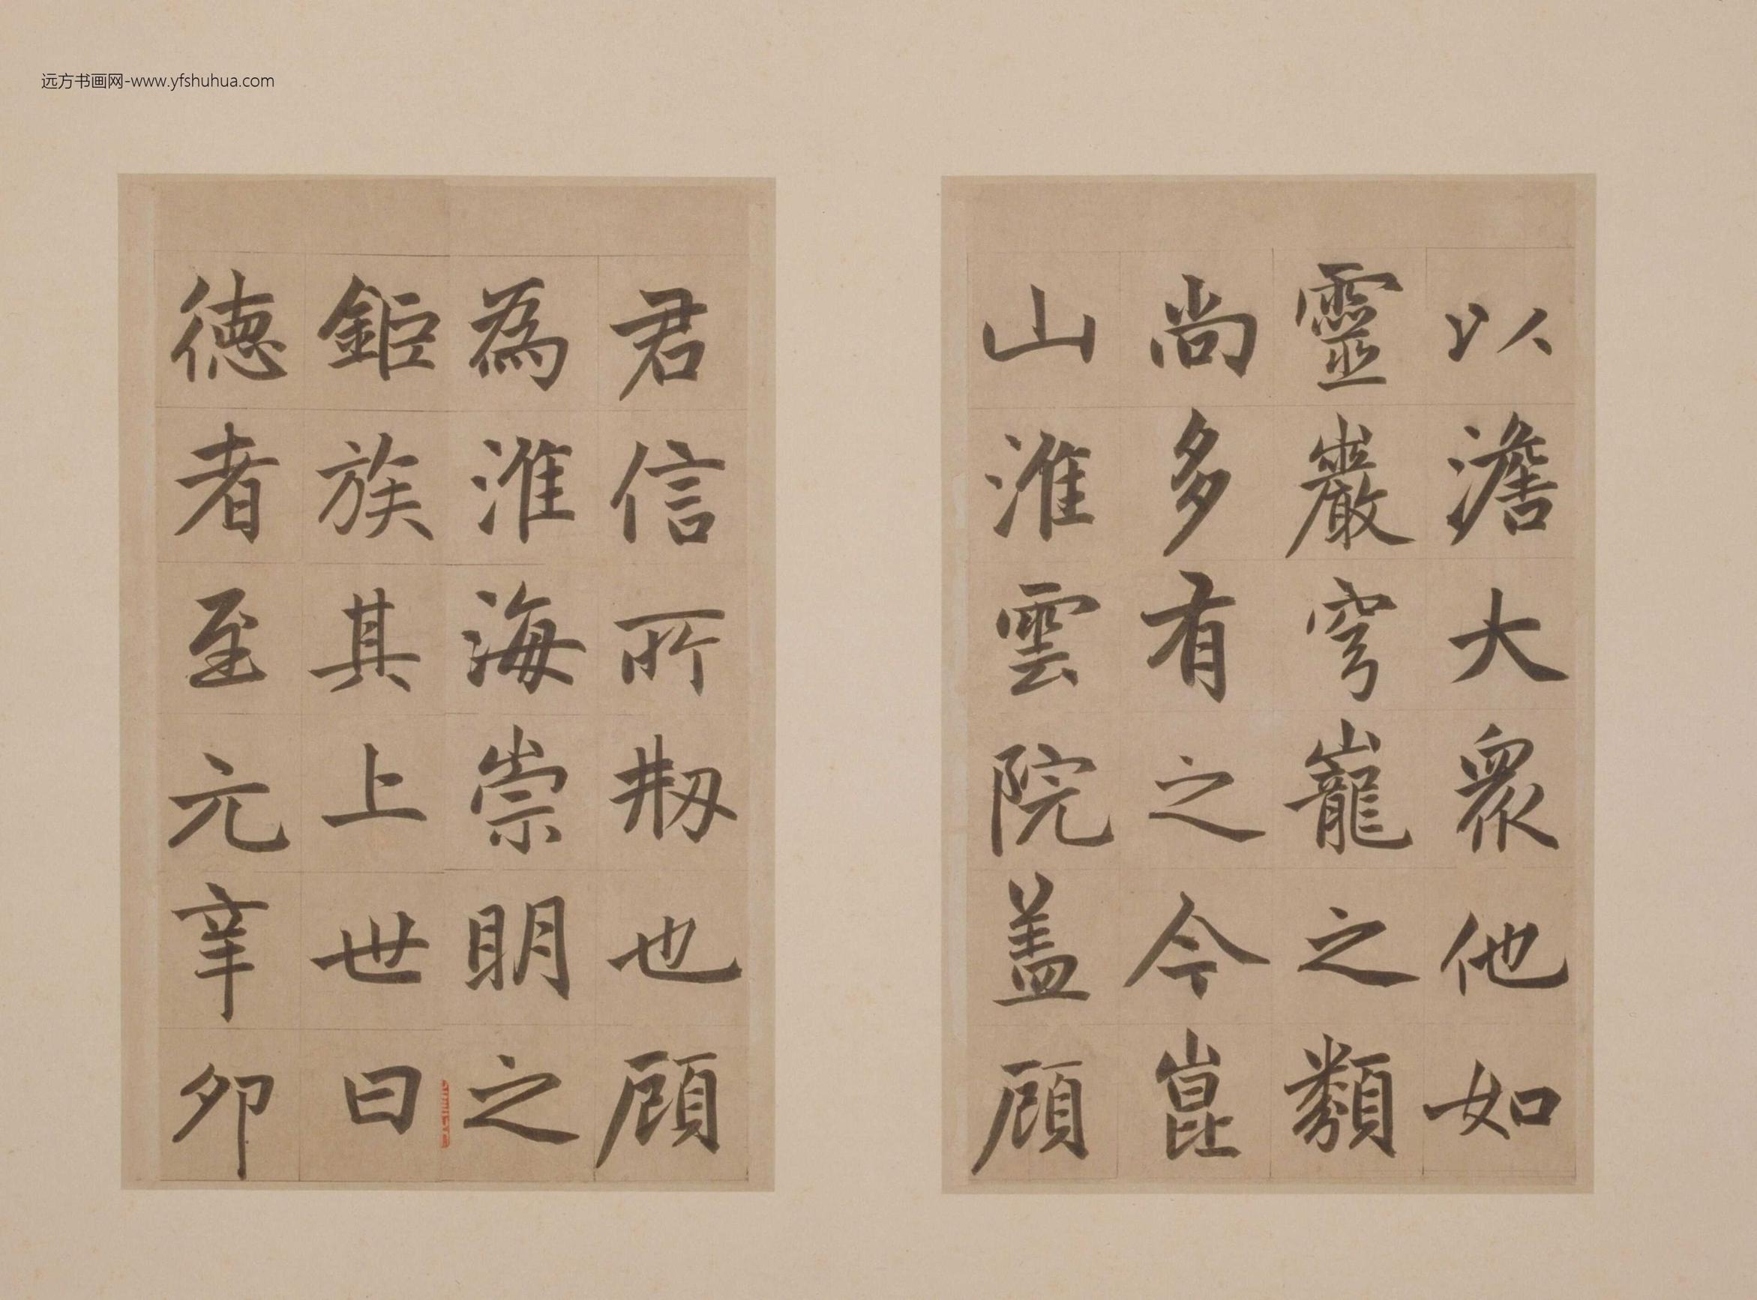 远方书画网-www.yfshuhua.com
以澹大衆他如
靈巖穹巃之類
尚多有之今崑
山淮雲院盖顧
君信所刱也顧
為淮海崇明之
鉅族其上世曰
德者至元辛卯